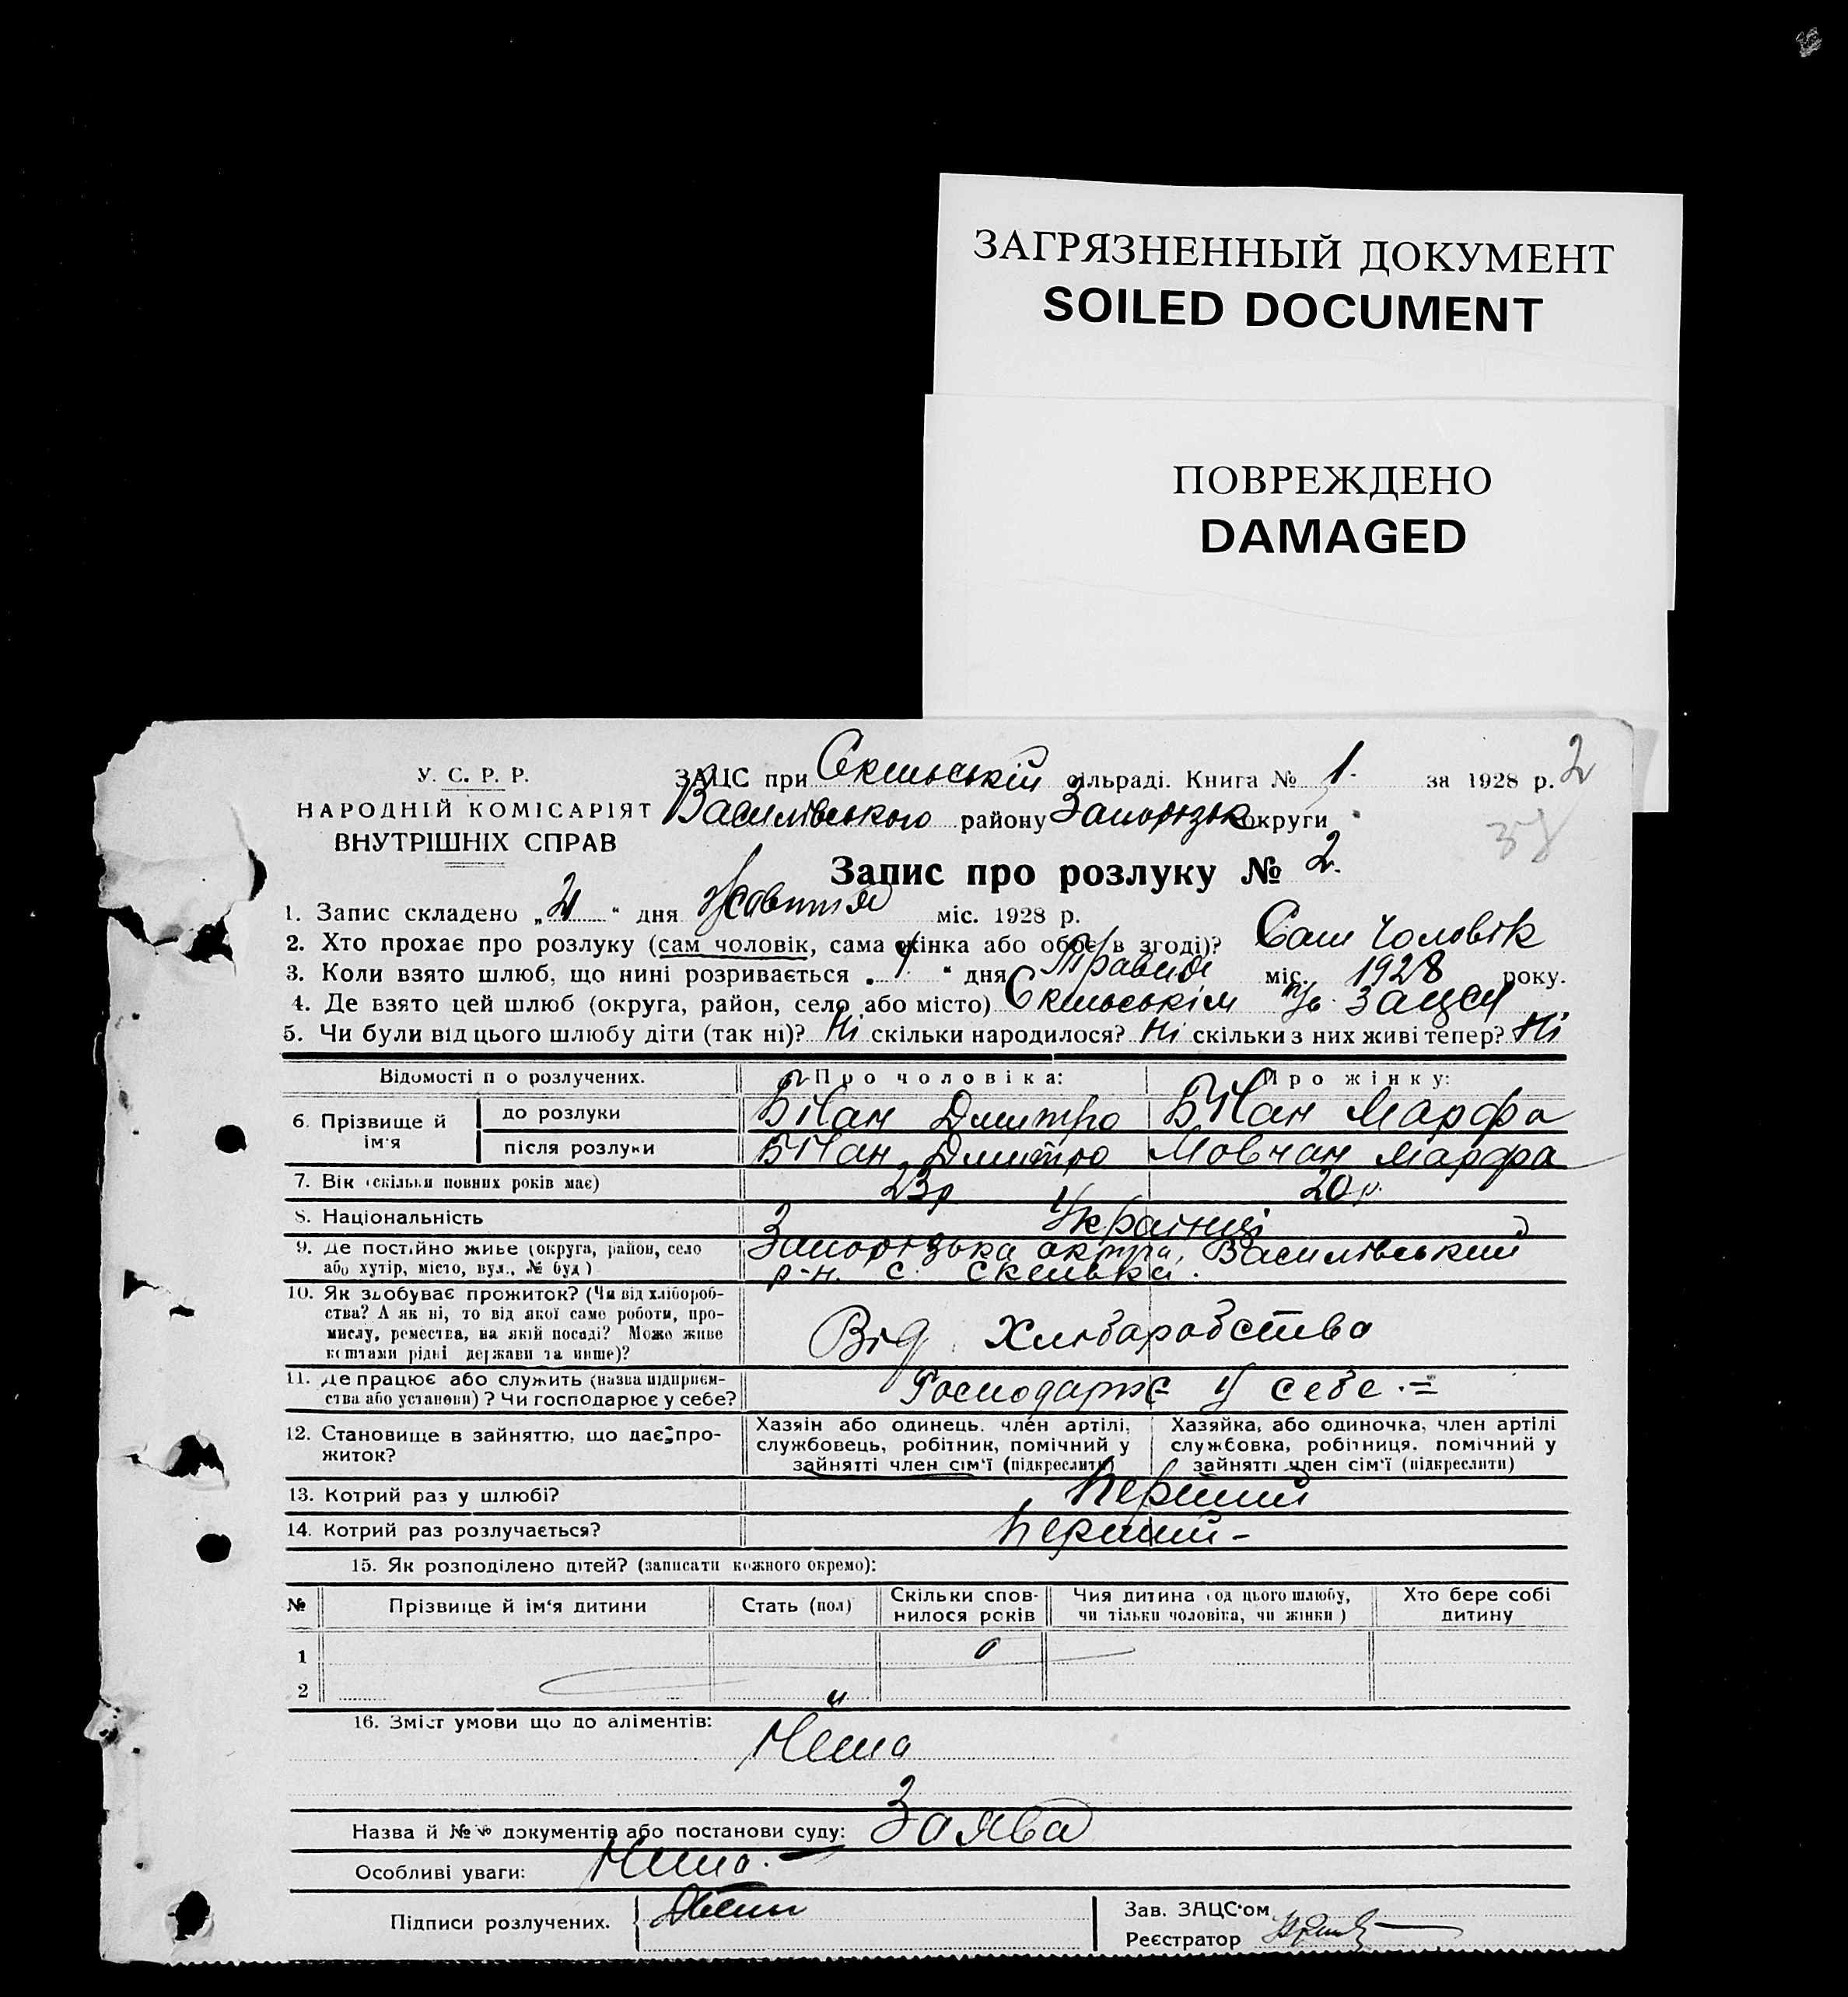 ЗАГРЯЗНЕННЫЙ ДОКУМЕНТ
SOILED DOCUMENT
ПОВРЕЖДЕНО
DAMAGED
У. С. Р. Р.
НАРОДНІЙ КОМІСАРІЯТ
ВНУТРІШНІХ СПРАВ
ЗАЦС при Скельській сільраді. Книга № 1. за 1928 р. 2
Василівського району Запорізьк округи
38
Запис про розлуку № 2.
1. Запис складено „2“ дня Жовтня міс. 1928 р.
2. Хто прохає про розлуку (сам чоловік, сама жінка або обоє в згоді)? Сам Чоловік
3. Коли взято шлюб, що нині розривається „ “ дня Травня міс. 1928 року.
4. Де взято цей шлюб (округа, район, село або місто) Скельськім ЗАЦСІ
5. Чи були від цього шлюбу діти (так ні)? Ні скільки народилося? Ні скільки з них живі тепер? Ні
Відомості п о розлучених. Про чоловіка: Про жінку:
6. Прізвище й ім'я
до розлуки Білан Дмитро Білан Марфа
після розлуки Білан Дмитро Мовчан Марфа
7. Вік (скільки повних років має) 23р 20р.
8. Національність Українці
9. Де постійно живе (округа, район, село Запорізька округа, Василівський
або хутір, місто, вул., № буд) р-н. с. Скельки.
10. Як здобуває прожиток? (Чи від хлібороб-
ства? А як ні, то від якої саме роботи, про-
мислу, ремества, на якій посаді? Може живе
коштами рідні держави та инше)?
Від Хлібаробства
11. Де працює або служить (назва підприєм-
ства або установи)? Чи господарює у себе?
Господарює у себе.=
12. Становище в зайняттю, що дає про-
житок?
Хазяїн або одинець, член артілі,
службовець, робітник, помічний у
зайнятті член сім'ї (підкреслити)
Хазяйка, або одиночка, член артілі
службовка, робітниця, помічний у
зайнятті член сім'ї (підкреслити)
13. Котрий раз у шлюбі? Перший
14. Котрий раз розлучається? Перший-
15. Як розподілено дітей? (записати кожного окремо):
№ Прізвище й ім'я дитини Стать (пол) Скільки спов-нилося років Чия дитина (од цього шлюбу, чи тільки чоловіка, чи жінки) Хто бере собі дитину
1
2
16. Зміст умови що до аліментів:
Нема
Назва й №№ документів або постанови суду: Заява
Особливі уваги: Нема.
Підписи розлучених.
Зав. ЗАЦС'ом
Реєстратор